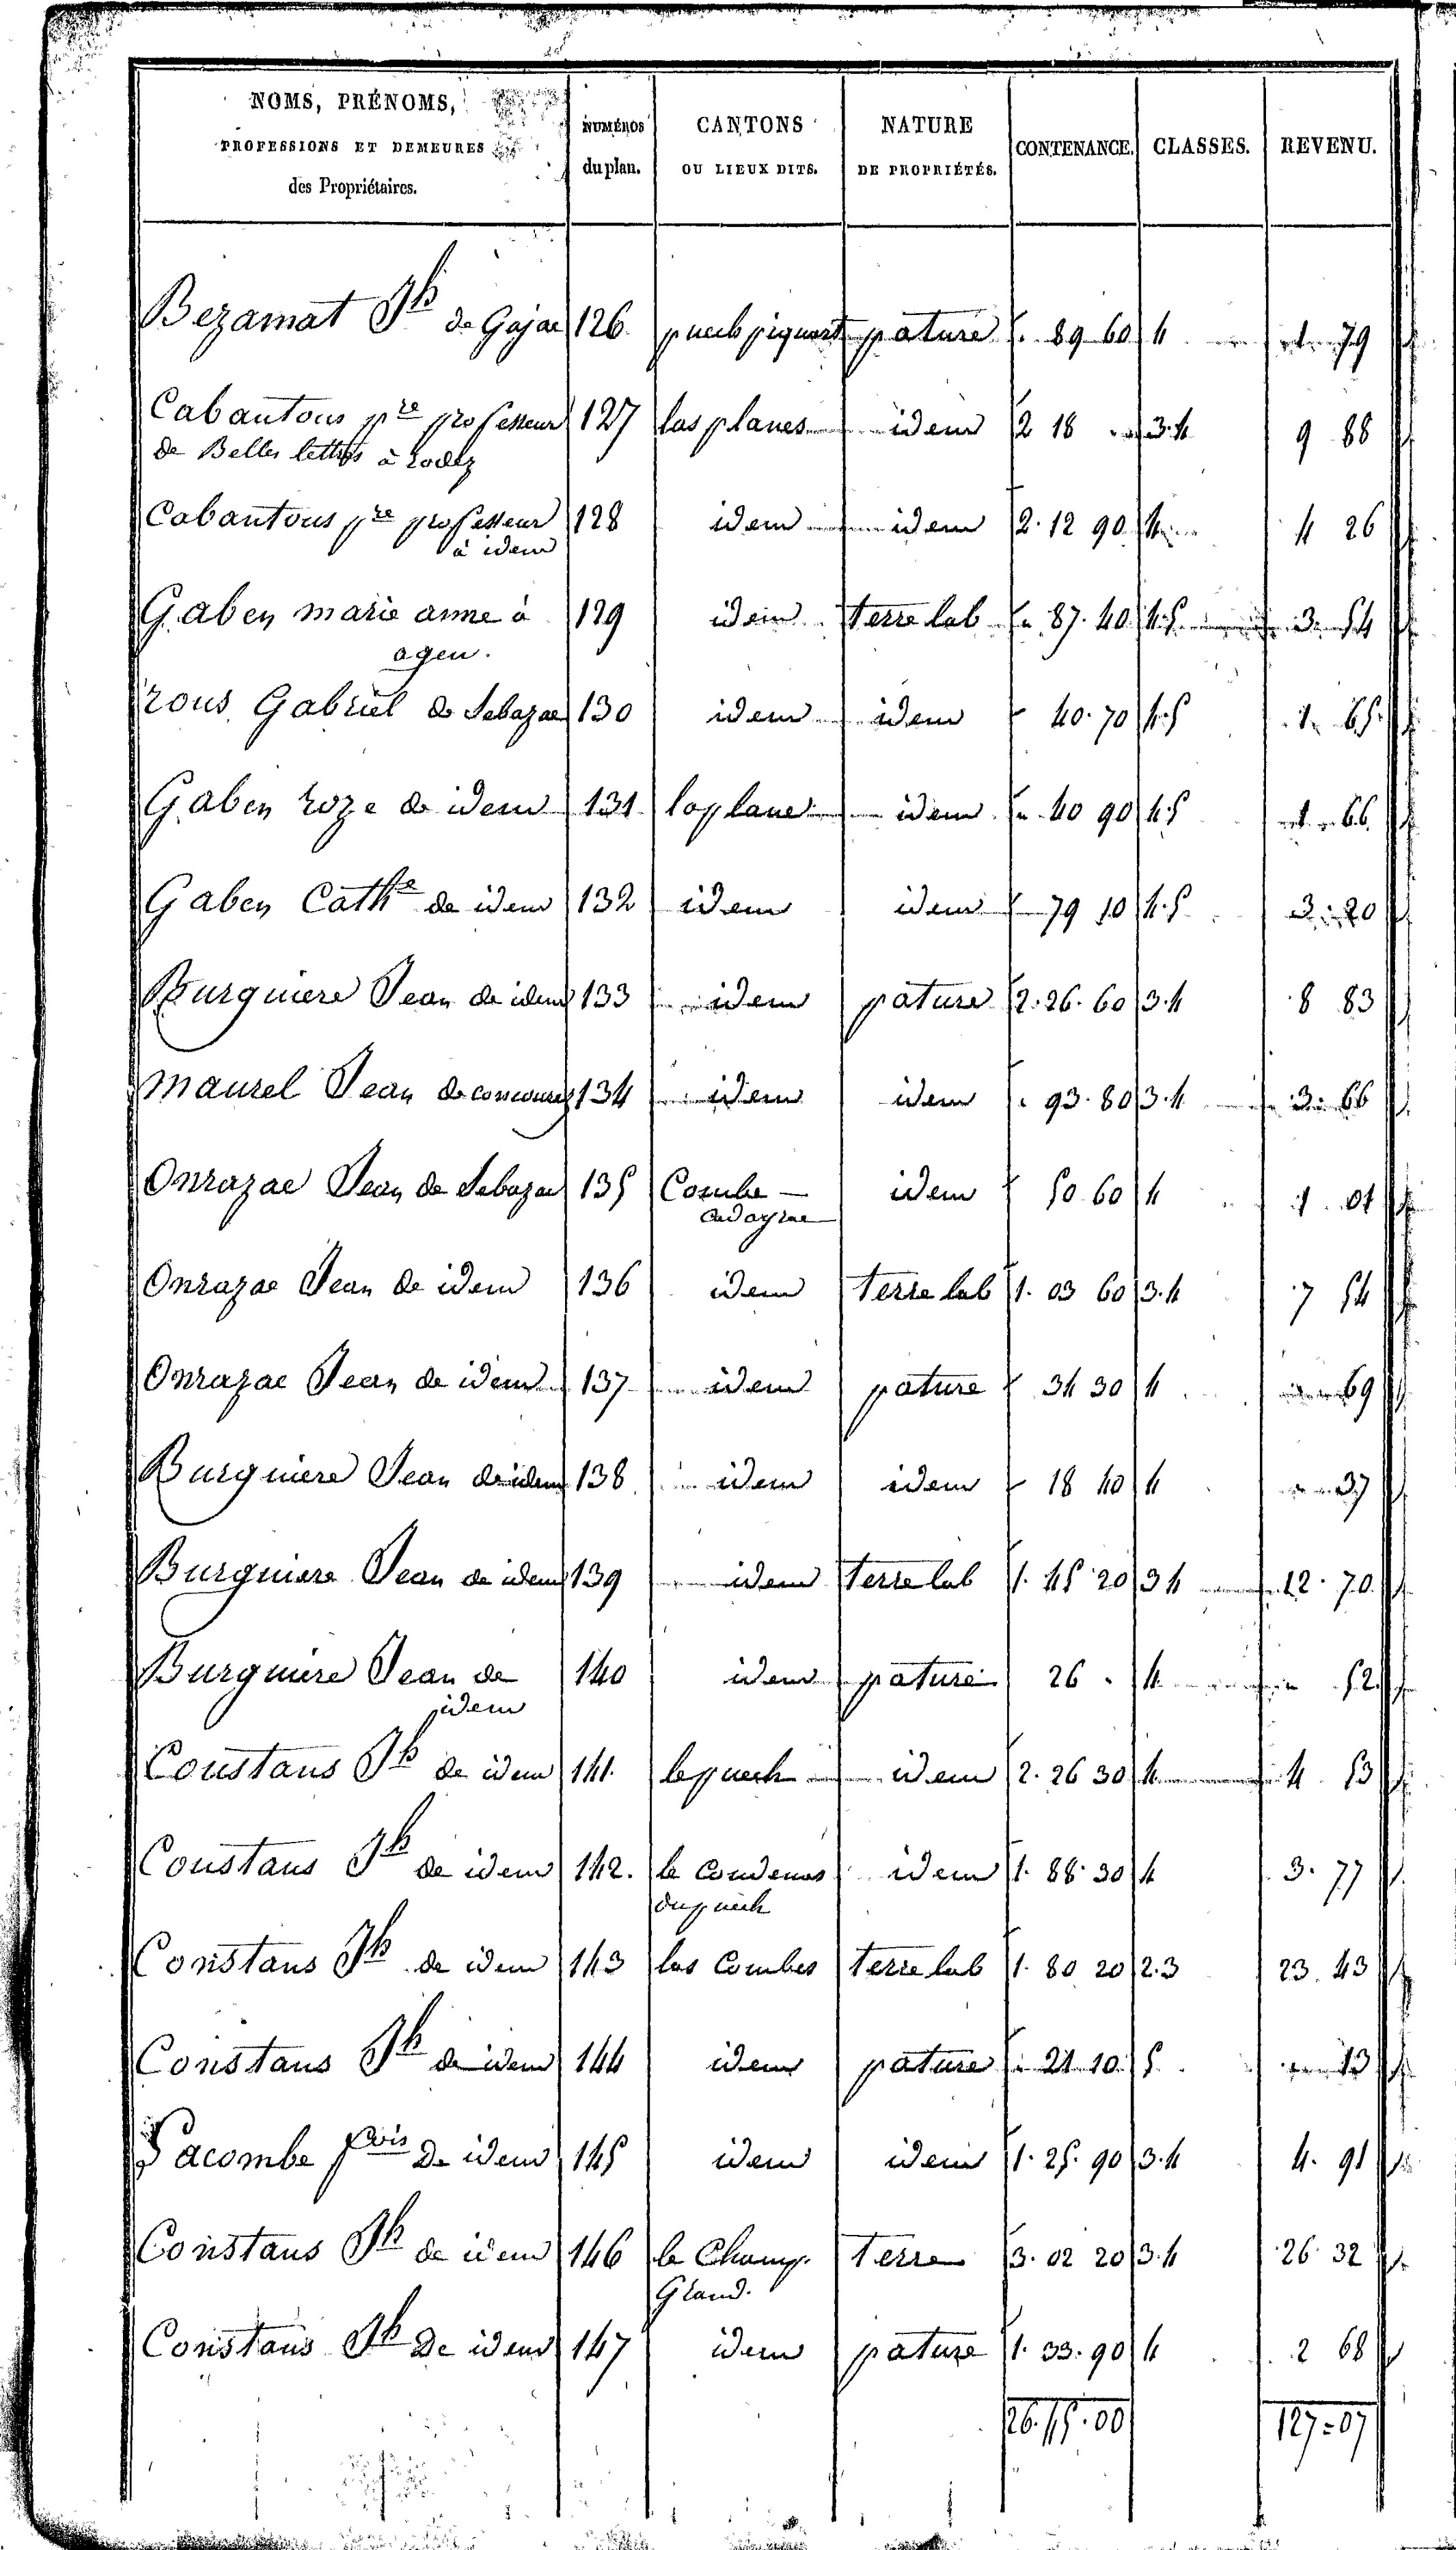 NOMS, PRÉNOMS, PROFESSIONS ET DEMEURES des Propriétaires. | NUMÉROS du plan. | CANTONS OU LIEUX DITS. | NATURE DE PROPRIÉTÉS. | CONTENANCE. | CLASSES. | REVENU.
Bezamat Jh de Gajac 126 puech piquart pature . 89 60 4 1 79
Cabantous pre professeur 127 las planes idem 2 18 . 3.4 9 88
de Belles lettres à rodez
Cabantous pre professeur 128 idem idem 2. 12 90 4 4 26
à idem
Gaben marie anne à 129 idem terre lab " 87. 40 4.5 3. 54
agen.
rous Gabriel de Sebazac 130 idem idem 40. 70 4.5 1. 65
Gaben roze de idem 131 laplane idem " 40 90 4.5 1 66
Gaben Cathe de idem 132 idem idem 79 10 4.5 3. 20
Burguiere Jean de idem 133 idem pature 2. 26. 60 3.4 8 83
maurel Jean de concoures 134 idem idem . 93. 80 3.4 3. 66
Onrazac Jean de Sebazac 135 Combe idem 50 60 4 1. 01
Onrazac Jean de idem 136 idem terre lab 1. 03 60 3.4 7 54
Onrazac Jean de idem 137 idem pature 34 30 4 69
Burguiere Jean de idem 138 idem idem 18 40 4 37
Burguiere Jean de idem 139 idem terre lab 1. 45 20 3 4 12. 70
Burguiere Jean de 140 idem pature 26 . 4 52
idem
Constans Jh de idem 141 le puech idem 2. 26 30 4 4 53
Constans Jh de idem 142. le Condenas idem 1. 88. 30 4 3. 77
du puech
Constans Jh de idem 143 las Combes terre lab 1. 80 20 2.3 23. 43
Constans Jh de idem 144 idem pature 21 10 5 13
Lacombe fcois De idem 145 idem idem 1. 25. 90 3.4 4. 91
Constans Jh de idem 146 le Champ terre 3. 02 20 3.4 26 32
Grand.
Constans Jh De idem 147 idem pature 1. 33. 90 4 2 68
26. 15. 00 127=07